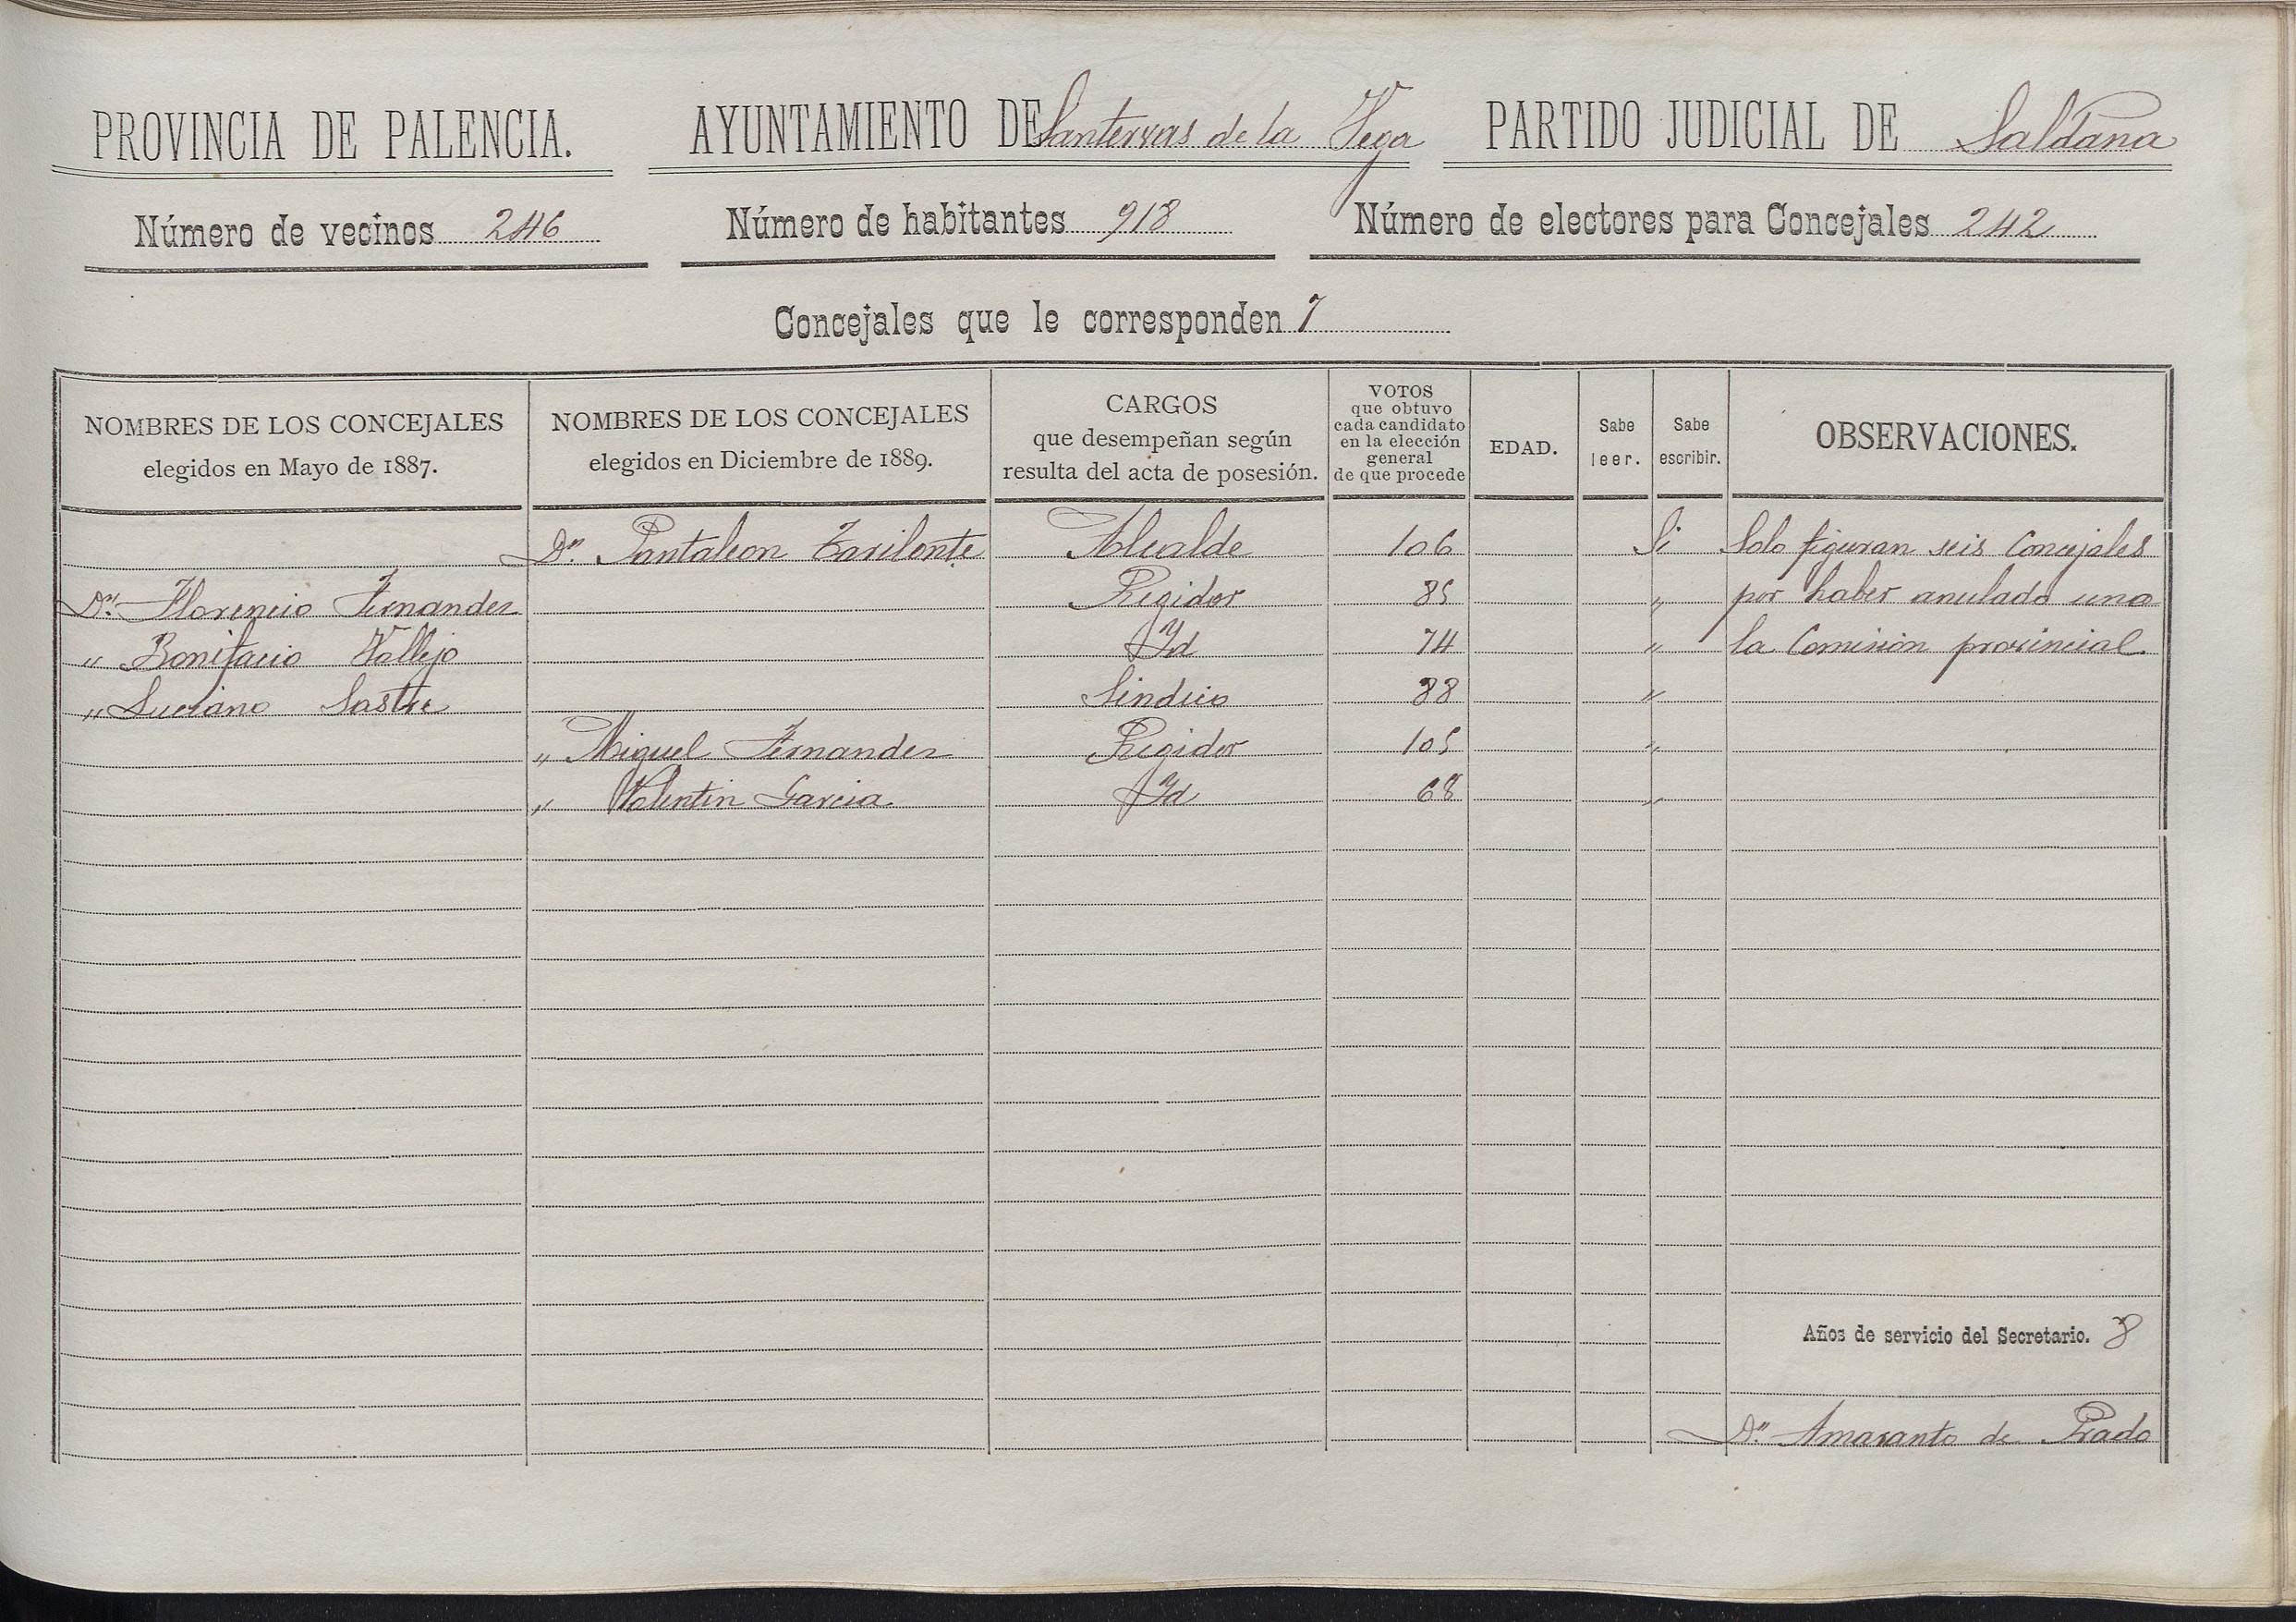 PROVINCIA DE PALENCIA. AYUNTAMIENTO DE Santervas de la Vega PARTIDO JUDICIAL DE Saldaña
Número de vecinos 246 Número de habitantes 918 Número de electores para Concejales 242
Concejales que le corresponden 7
NOMBRES DE LOS CONCEJALES
elegidos en Mayo de 1887.
NOMBRES DE LOS CONCEJALES
elegidos en Diciembre de 1889.
CARGOS
que desempeñan según
resulta del acta de posesión.
VOTOS
que obtuvo
cada candidato
en la elección
general
de que procede
EDAD.
Sabe
leer.
Sabe
escribir.
OBSERVACIONES.
Dn. Pantaleon Alcalde 106 Si Solo figuran seis Concejales
Dn. Florencio Fernandez Regidor 85 " por haber anulado uno
" Bonifacio Vallejo Yd 74 " la Comision provincial.
" Luciano Sastre Sindico 88 "
" Miguel Fernandez Regidor 105 "
" Valentin Garcia. Yd 68 "
Años de servicio del Secretario. 8
Dn. Amaranto de Prado